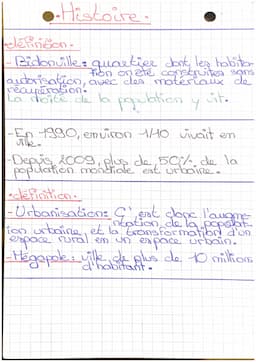 • Histoire •
• définition •
- Bidonville : quartier dont les habita-
tion on été construites sans
autorisation, avec des matériaux de
récupération.
La moitié de la population y vit.
- En 1990, environ 1/10 vivait en
ville.
- Depuis 2009, plus de 50% de la
population mondiale est urbaine.
• définition •
- Urbanisation : C'est donc l'augme-
ntation de la populat-
ion urbaine, et la transformation d'un
espace rural en un espace urbain.
- Mégapole : ville de plus de 10 millions
d'habitant.